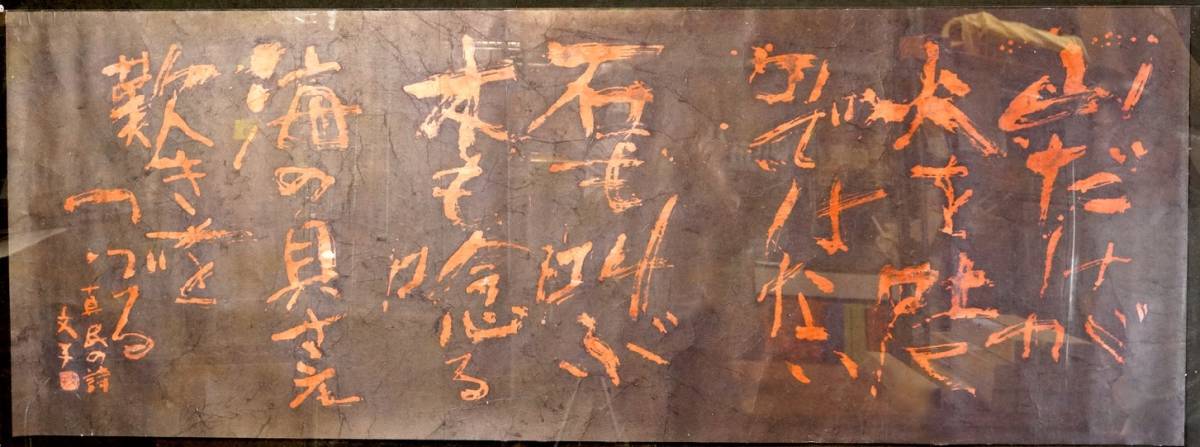 山だけが
火を吐く
のではない
石も叫ぶ
木も唸る
海の貝さえ
歎きを
つづる
真民の詩